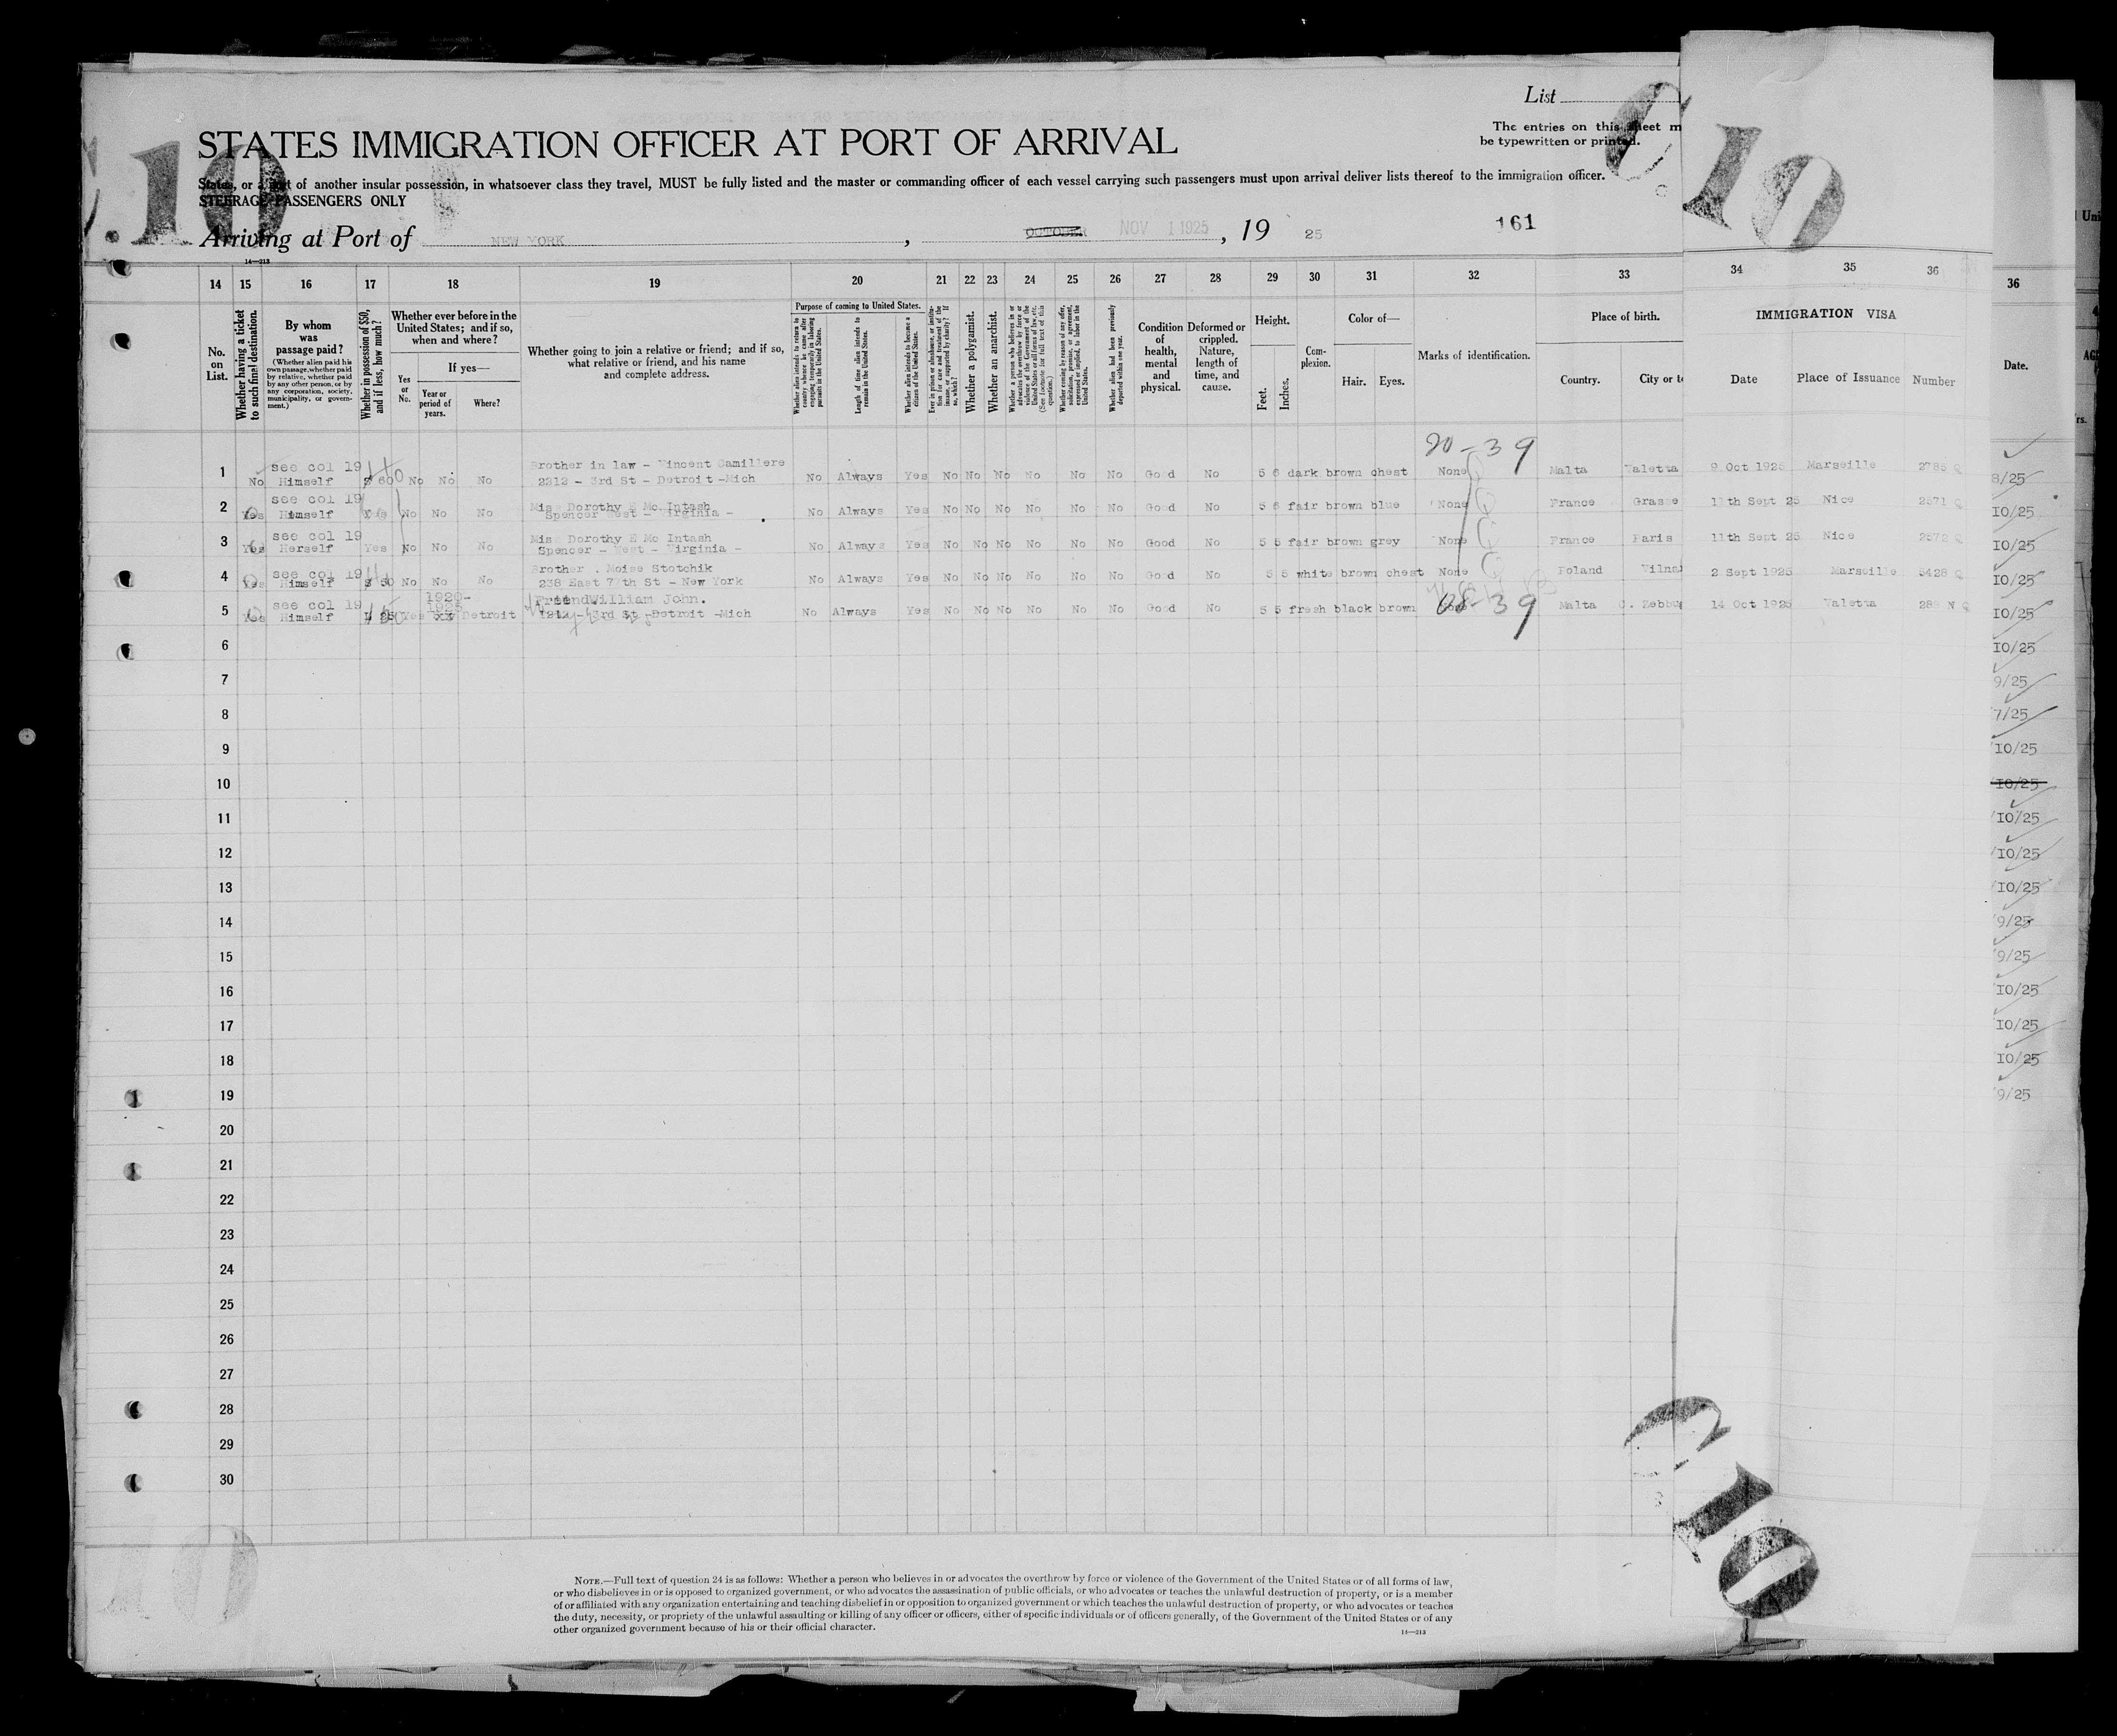 List
The entries on this sheet m
be typewritten or printed.
STATES IMMIGRATION OFFICER AT PORT OF ARRIVAL
States, or a port of another insular possession, in whatsoever class they travel, MUST be fully listed and the master or commanding officer of each vessel carrying such passengers must upon arrival deliver lists thereof to the immigration officer.
STEERAGE PASSENGERS ONLY
Arriving at Port of NEW YORK , OCTOBER NOV 1 1925 , 19 25 161
14—213
C 10
14 15 16 17 18 19 20 21 22 23 24 25 26 27 28 29 30 31 32 33 34 35 36 36
No. on List.
Whether having a ticket to such final destination.
By whom was passage paid?
(Whether alien paid his own passage, whether paid by relative, whether paid by any other person, or by any corporation, society, municipality, or government.)
Whether in possession of $50, and if less, how much?
Whether ever before in the United States; and if so, when and where?
Yes or No.
If yes—
Year or period of years.
Where?
Whether going to join a relative or friend; and if so, what relative or friend, and his name and complete address.
Purpose of coming to United States.
Length of time alien intends to remain in the United States.
Whether alien intends to become a citizen of the United States.
Whether a polygamist.
Whether an anarchist.
Whether alien had been previously deported within one year.
Condition of health, mental and physical.
Deformed or crippled. Nature, length of time, and cause.
Height.
Feet.
Inches.
Complexion.
Color of—
Hair. Eyes.
Marks of identification.
Place of birth.
Country. City or to
IMMIGRATION VISA
Date Place of Issuance Number
Date.
20-39
1 No see col 19 Himself $ 60 No No No Brother in law - Vincent Camillere
2312 - 3rd St - Detroit -Mich No Always Yes No No No No No No Good No 5 6 dark brown chest None Malta Valetta 9 Oct 1925 Marseille 2785 Q
2 Yes see col 19 Himself Yes No No No Mis Dorothy E Mc Intash
Spencer West - Virginia - No Always Yes No No No No No No Good No 5 6 fair brown blue None France Grasse 11th Sept 25 Nice 2571 Q
3 Yes see col 19 Herself Yes No No No Mis Dorothy E Mc Intash
Spencer - West - Virginia - No Always Yes No No No No No No Good No 5 5 fair brown grey None France Paris 11th Sept 25 Nice 2572 Q
4 Yes see col 19 Himself $ 50 No No No Brother . Moise Stotchik
238 East 7th St - New York No Always Yes No No No No No No Good No 5 5 white brown chest None Poland Vilna 2 Sept 1925 Marseille 5428 Q
5 Yes see col 19 Himself Yes 1920-1925 Detroit Friend William John.
3rd St -Detroit -Mich No Always Yes No No No No No No Good No 5 5 fresh black brown 39 Malta C. Zebbug 14 Oct 1925 Valetta
6
7
8
9
10
11
12
13
14
15
16
17
18
19
20
21
22
23
24
25
26
27
28
29
30
8/25
10/25
10/25
10/25
10/25
10/25
9/25
7/25
10/25
10/25
10/25
10/25
10/25
9/25
9/25
10/25
10/25
10/25
9/25
C 10
NOTE.—Full text of question 24 is as follows: Whether a person who believes in or advocates the overthrow by force or violence of the Government of the United States or of all forms of law,
or who disbelieves in or is opposed to organized government, or who advocates the assassination of public officials, or who advocates or teaches the unlawful destruction of property, or is a member
of or affiliated with any organization entertaining and teaching disbelief in or opposition to organized government or which teaches the unlawful destruction of property, or who advocates or teaches
the duty, necessity, or propriety of the unlawful assaulting or killing of any officer or officers, either of specific individuals or of officers generally, of the Government of the United States or of any
other organized government because of his or their official character.
14—213